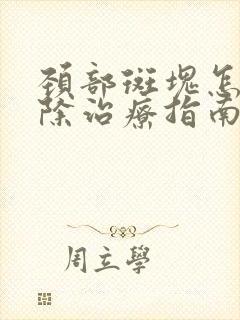 頚部斑塊怎
除治療指南
周立學